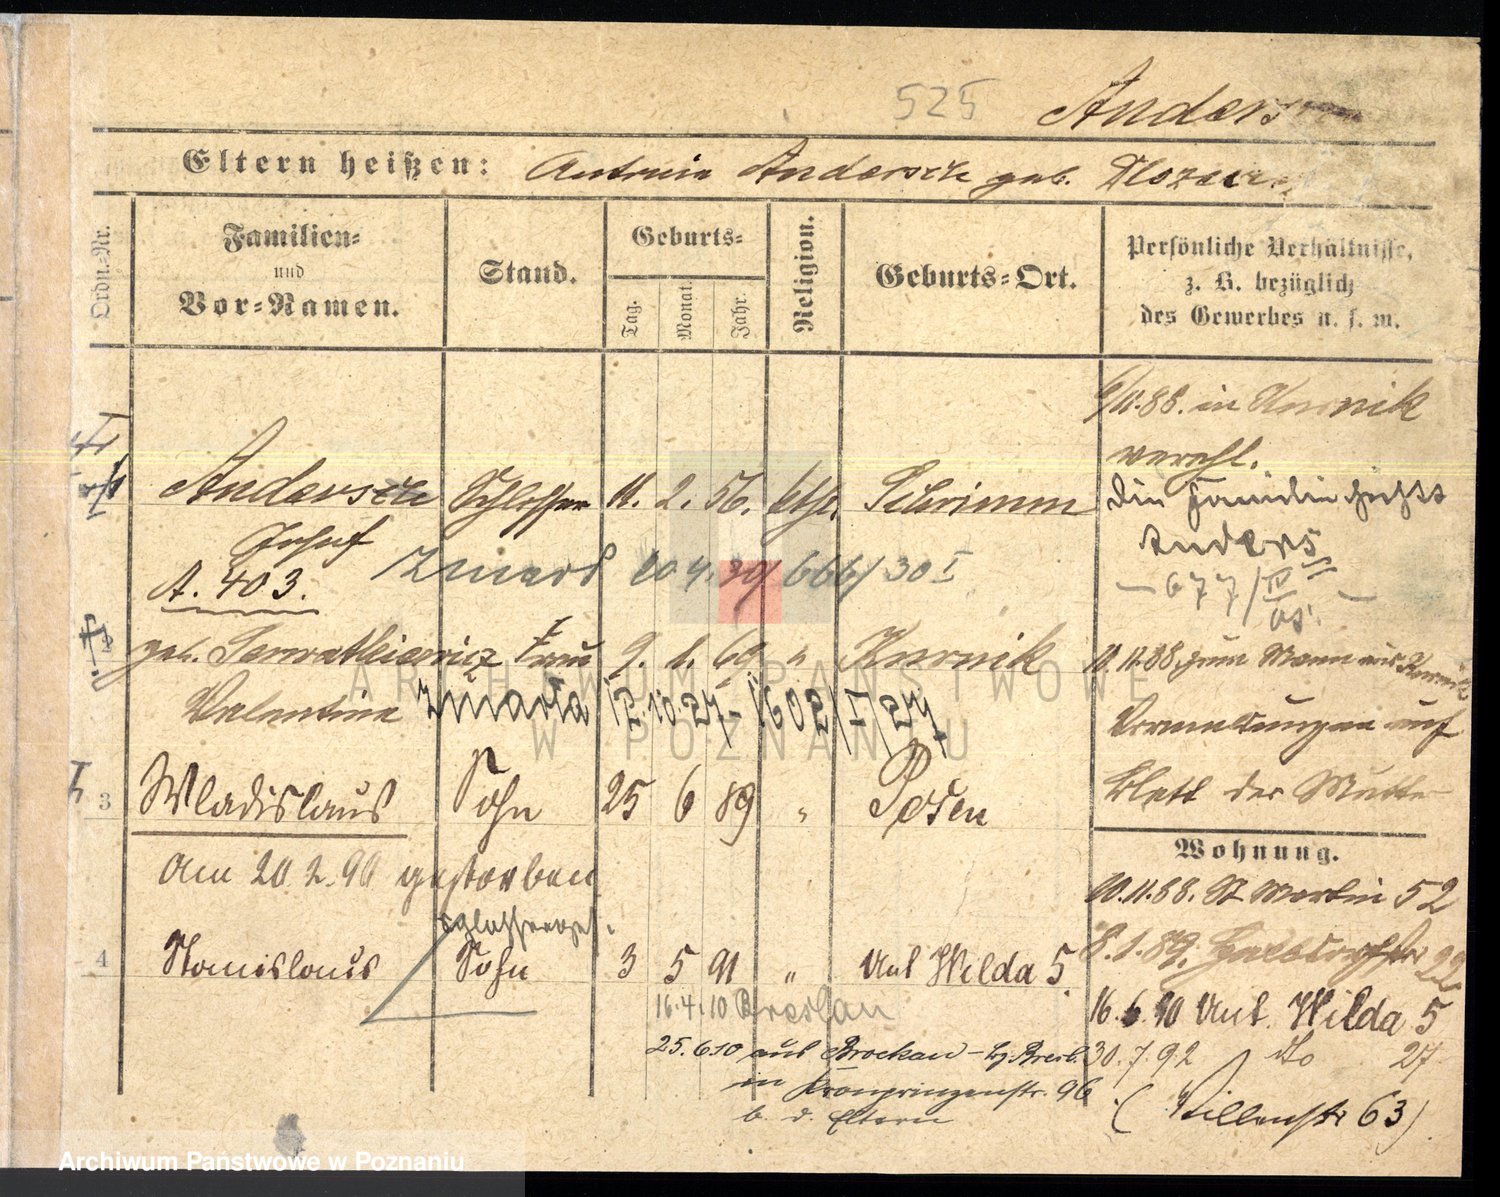 525 Anders
Eltern heißen: Antonie Andersch geb.
Ordn.-Nr.
Familien-
und
Vor-Namen.
Stand.
Geburts-
Tag. Monat. Jahr.
Religion.
Geburts-Ort.
Persönliche Verhältnisse,
z. B. bezüglich
des Gewerbes u. s. w.
/11.88. in Kurnik
verehl.
Andersch Schlosser 11. 2. 56. kth. Schrimm
die Familie heißt
Josef
Anders
A. 403.
Zmarł 20.4.39/666/30 I
677/IV
05.
geb. Frau 9. 1. 69 " Kurnik
10.11.88. zum Mann aus Kurnik
Valentine zmarła 12.10.27-1602/I/27
Vermerkungen auf
Blatt der Mutter
3 Wladislaus Sohn 25 6 89 " Posen
Wohnung.
Am 20.2.90 gestorben
10.11.88. St Martin 52
Schlosserges.
4 Stanislaus Sohn 3 5 91 " Unt Wilda 5.
8.1.89. Halbdorfstr 22
16.4.10 Breslau
16.6.90 Unt. Wilda 5
25.6.10 aus Brockau - b/ Bresl.
30.7.92 dto 27
in Kronprinzenstr. 96
b. d. Eltern
(Villenstr 63)
ARCHIWUM PAŃSTWOWE
W POZNANIU
Archiwum Państwowe w Poznaniu